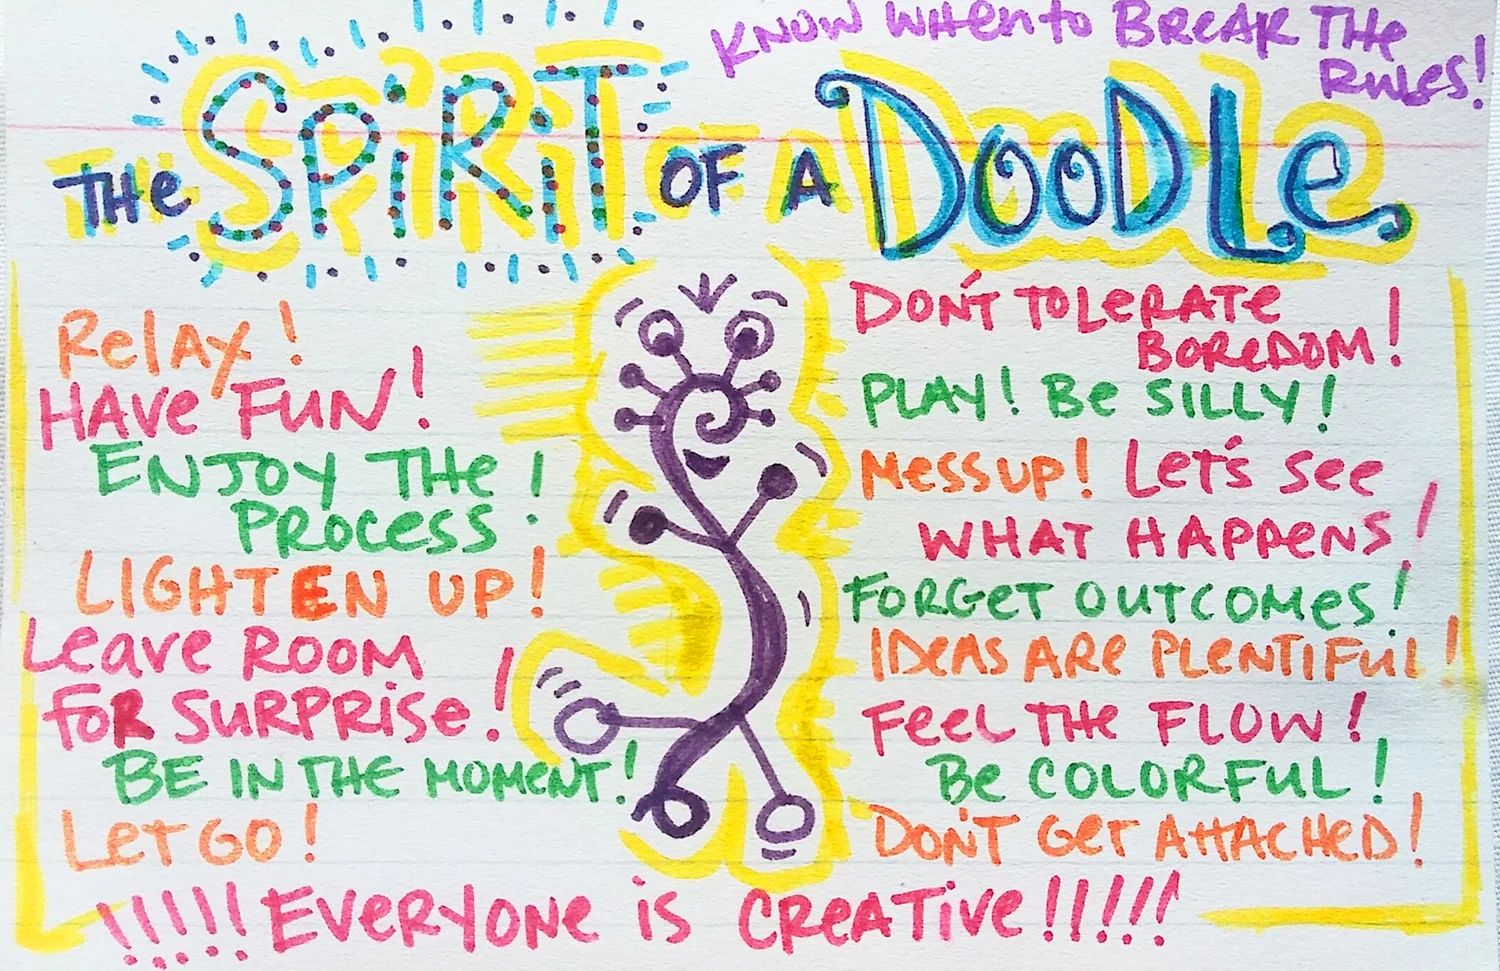 KNOW WHEN to BREAK THE
RULES!
THE SPiRiT OF A DOODLe
RelAx!
HAVe FUN!
ENJOY THe
PROCess!
LIGHTEN UP!
Leave ROOM
FOR SURPRise!
BE IN THE MOMENT!
LeT GO!
DON'T TOLeRATe
BOReDOM!
PLAY! Be SILLY!
Mess up! LeT's see
WHAT HAPPeNS!
FORGeT OUTCOMes!
IDeAS ARe PLENTiFuL!
FeeL THe FLOW!
Be COLORFuL!
DON'T GeT ATTACHeD!
!!!!! EVeRYONe is CReATive!!!!!